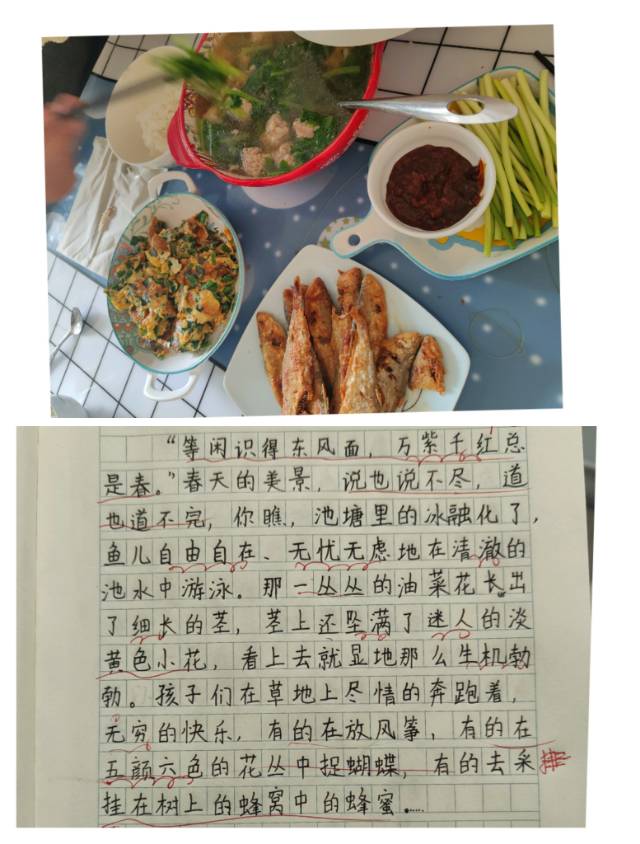 “等闲识得东风面，万紫千红总
是春。”春天的美景，说也说不尽，道
也道不完，你瞧，池塘里的冰融化了，
鱼儿自由自在、无忧无虑地在清澈的
池水中游泳。那一丛丛的油菜花长出
了细长的茎，茎上还坠满了迷人的淡
黄色小花，看上去就显地那么生机勃
勃。孩子们在草地上尽情的奔跑着，
无穷的快乐，有的在放风筝，有的在
五颜六色的花丛中捉蝴蝶，有的去采
排
挂在树上的蜂窝中的蜂蜜……